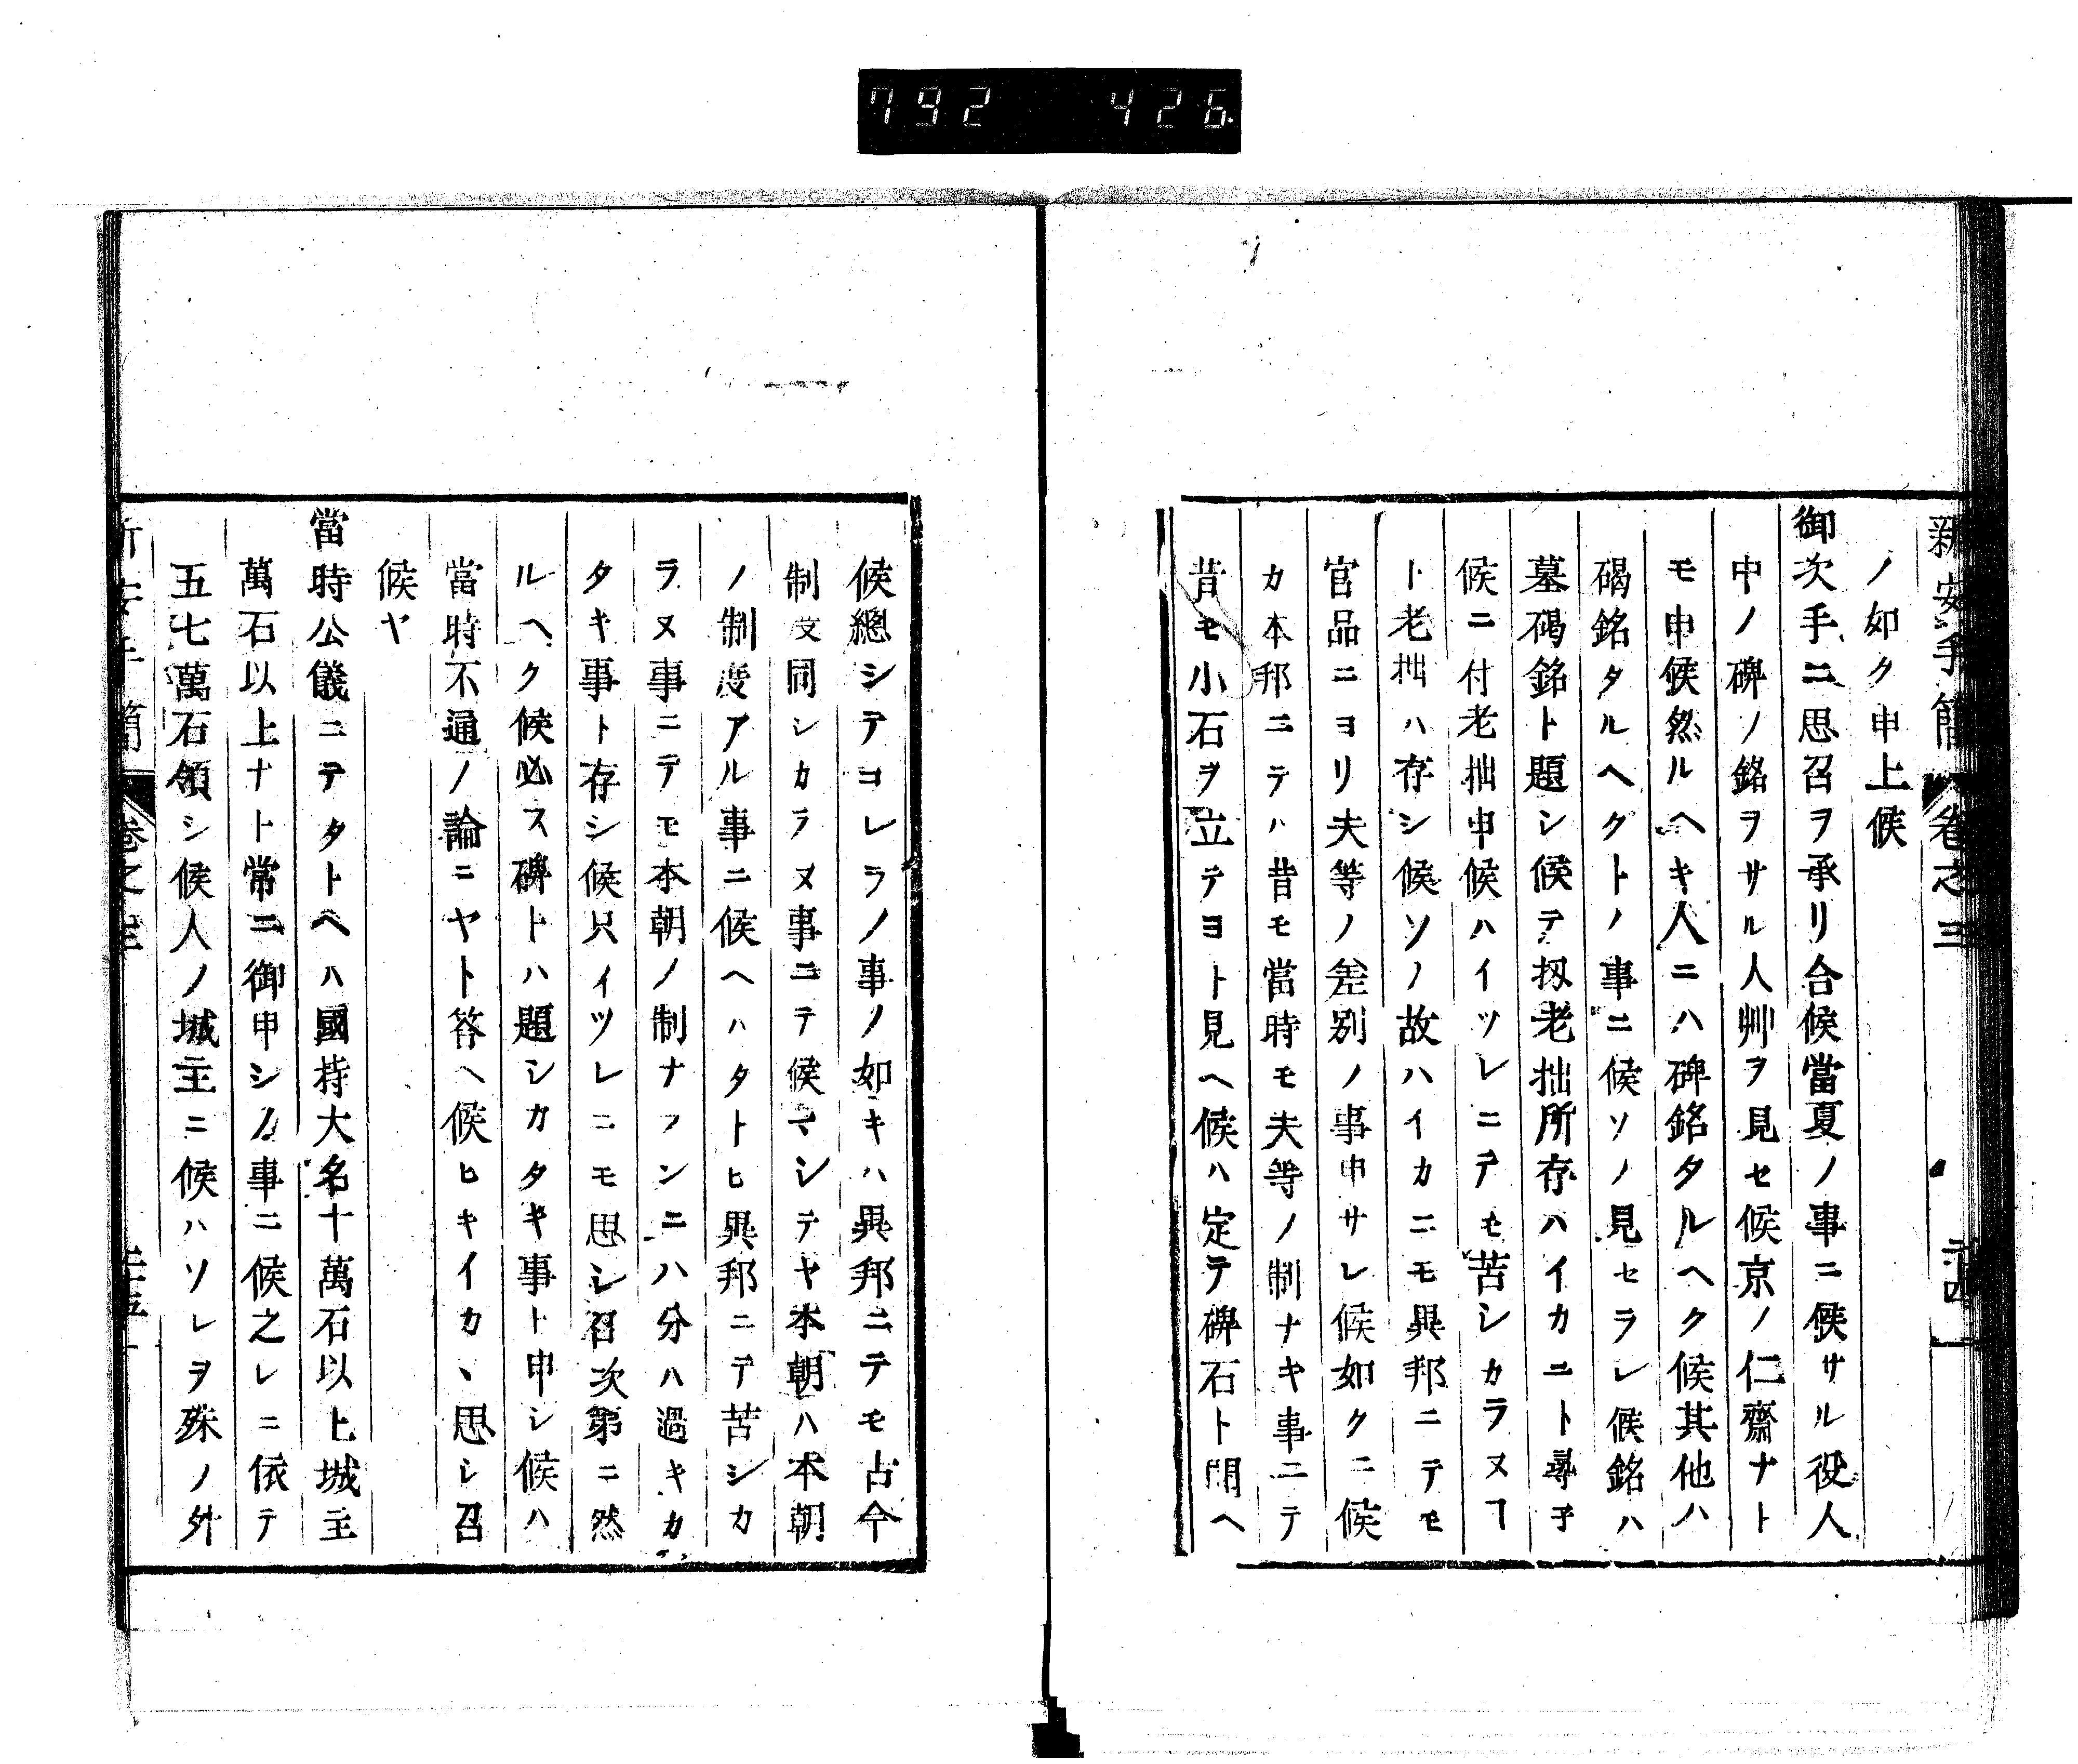 792 426
新安手簡 卷之三 二十四
ノ如ク申上候
御次手ニ思召ヲ承リ合候當夏ノ事ニ候サル役人
中ノ碑ノ銘ヲサル人艸ヲ見セ候京ノ仁齋ナト
モ申候然ルヘキ人ニハ碑銘タルヘク候其他ハ
碣銘タルヘクトノ事ニ候ソノ見セラレ候銘ハ
墓碣銘ト題シ候テ扨老拙所存ハイカニト尋子
候ニ付老拙申候ハイツレニテモ苦シカラヌヿ
ト老拙ハ存シ候ソノ故ハイカニモ異邦ニテモ
官品ニヨリ夫等ノ差別ノ事申サレ候如クニ候
カ本邦ニテハ昔モ當時モ夫等ノ制ナキ事ニテ
昔モ小石ヲ立テヨト見ヘ候ハ定テ碑石ト聞ヘ
候總シテヨレラノ事ノ如キハ異邦ニテモ古今
制度同シカラヌ事ニテ候マシテヤ本朝ハ本朝
ノ制度アル事ニ候ヘハタトヒ異邦ニテ苦シカ
ラヌ事ニテモ本朝ノ制ナランニハ分ハ過キカ
タキ事ト存シ候只イツレニモ思シ召次第ニ然
ルヘク候必ス碑トハ題シカタキ事ト申シ候ハ
當時不通ノ論ニヤト答ヘ候ヒキイカヽ思シ召
候ヤ
當時公儀ニテタトヘハ國持大名十萬石以上城主
萬石以上ナト常ニ御申シノ事ニ候之レニ依テ
五七萬石領シ候人ノ城主ニ候ハソレヲ殊ノ外
新安手簡 卷之三 二十五